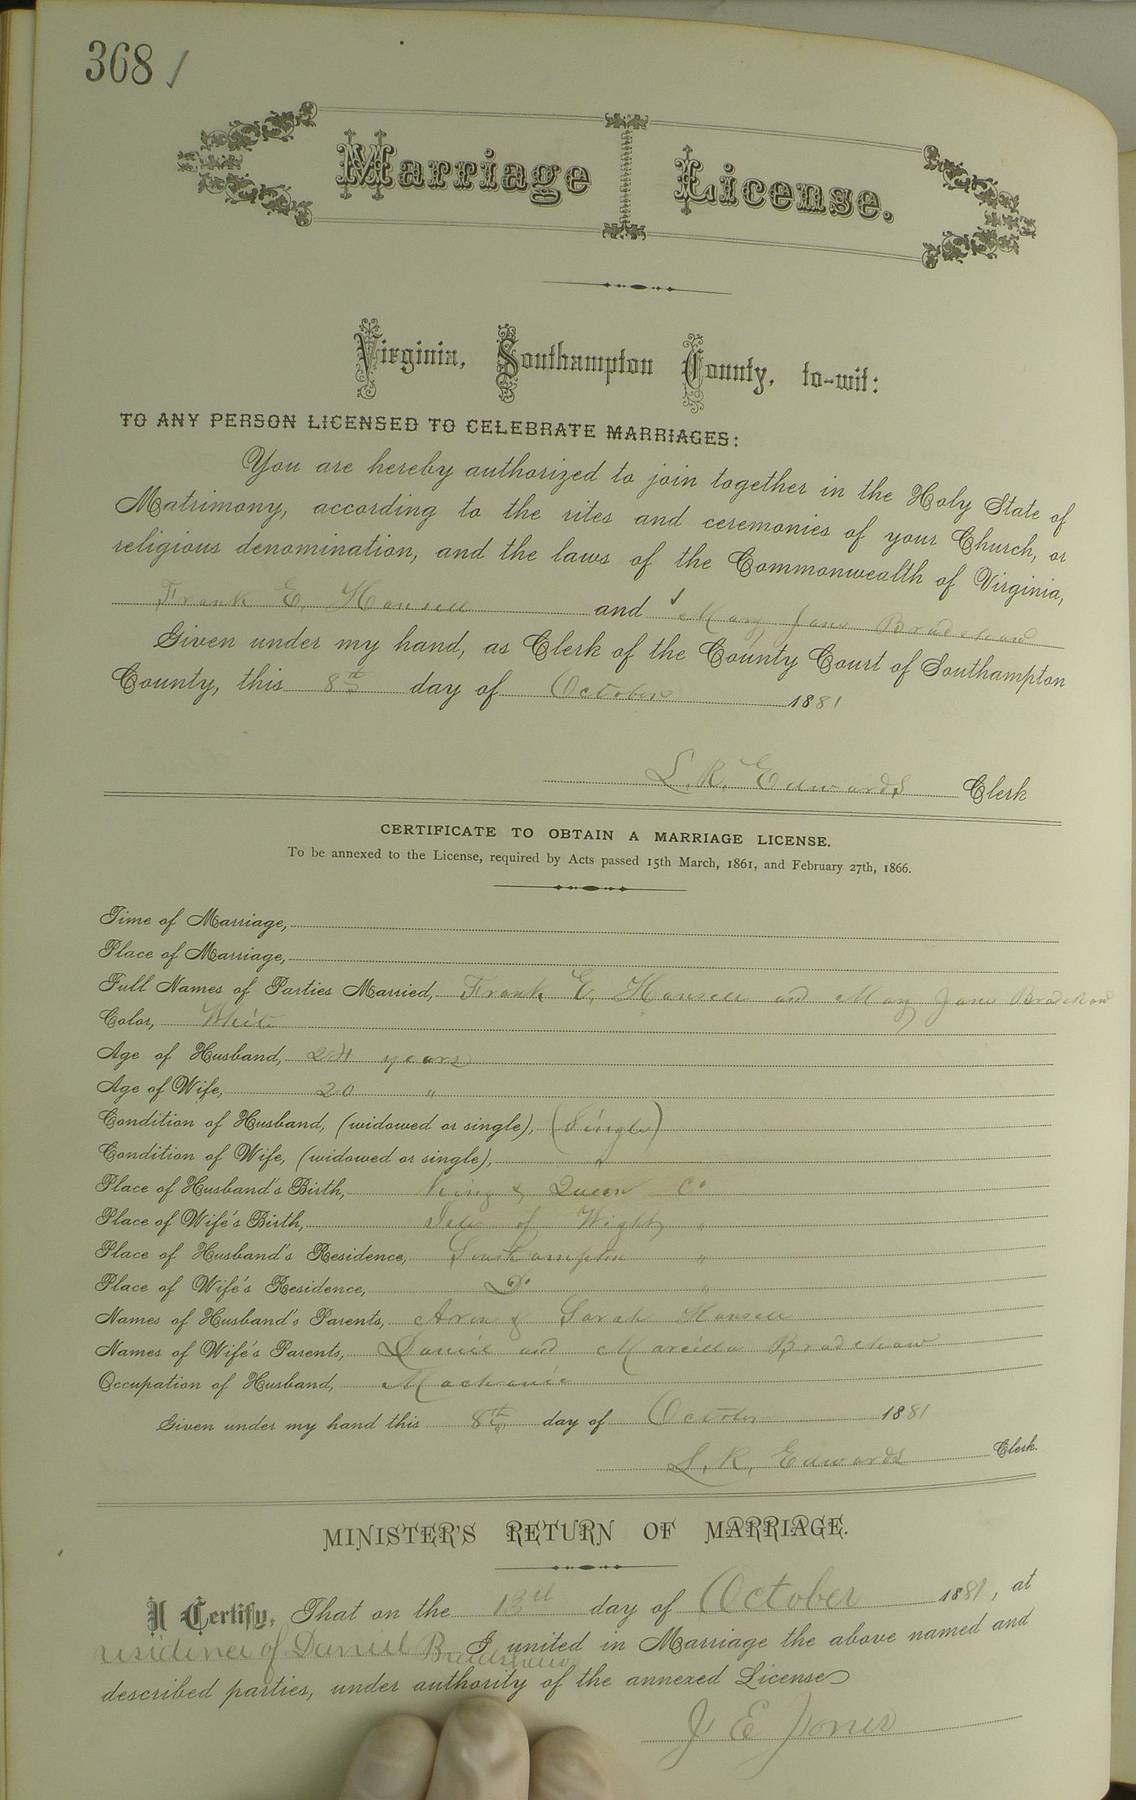 368
Marriage License.
Virginia, Southampton County, to-wit:
TO ANY PERSON LICENSED TO CELEBRATE MARRIAGES:
You are hereby authorized to join together in the Holy State of
Matrimony, according to the rites and ceremonies of your Church, or
religious denomination, and the laws of the Commonwealth of Virginia,
Frank E. Hansell and Mary Jane Bradshaw
Given under my hand, as Clerk of the County Court of Southampton
County, this 8th day of October 1881
L. R. Edwards Clerk
CERTIFICATE TO OBTAIN A MARRIAGE LICENSE.
To be annexed to the License, required by Acts passed 15th March, 1861, and February 27th, 1866.
Time of Marriage,
Place of Marriage,
Full Names of Parties Married, Frank E. Hansell and Mary Jane Bradshaw
Color, White
Age of Husband, 24 years
Age of Wife, 20 "
Condition of Husband, (widowed or single), (Single)
Condition of Wife, (widowed or single), "
Place of Husband's Birth, King & Queen Co
Place of Wife's Birth, Isle of Wight "
Place of Husband's Residence, Southampton "
Place of Wife's Residence, Do "
Names of Husband's Parents, & Sarah Hansell
Names of Wife's Parents, Daniel and Marcilla Bradshaw
Occupation of Husband, Mechanic
Given under my hand this 8th day of October 1881
L. R. Edwards Clerk.
MINISTER'S RETURN OF MARRIAGE.
I Certify, That on the 13th day of October 1881, at
residence of Daniel B Bradshaw I united in Marriage the above named and
described parties, under authority of the annexed License
J E Jones